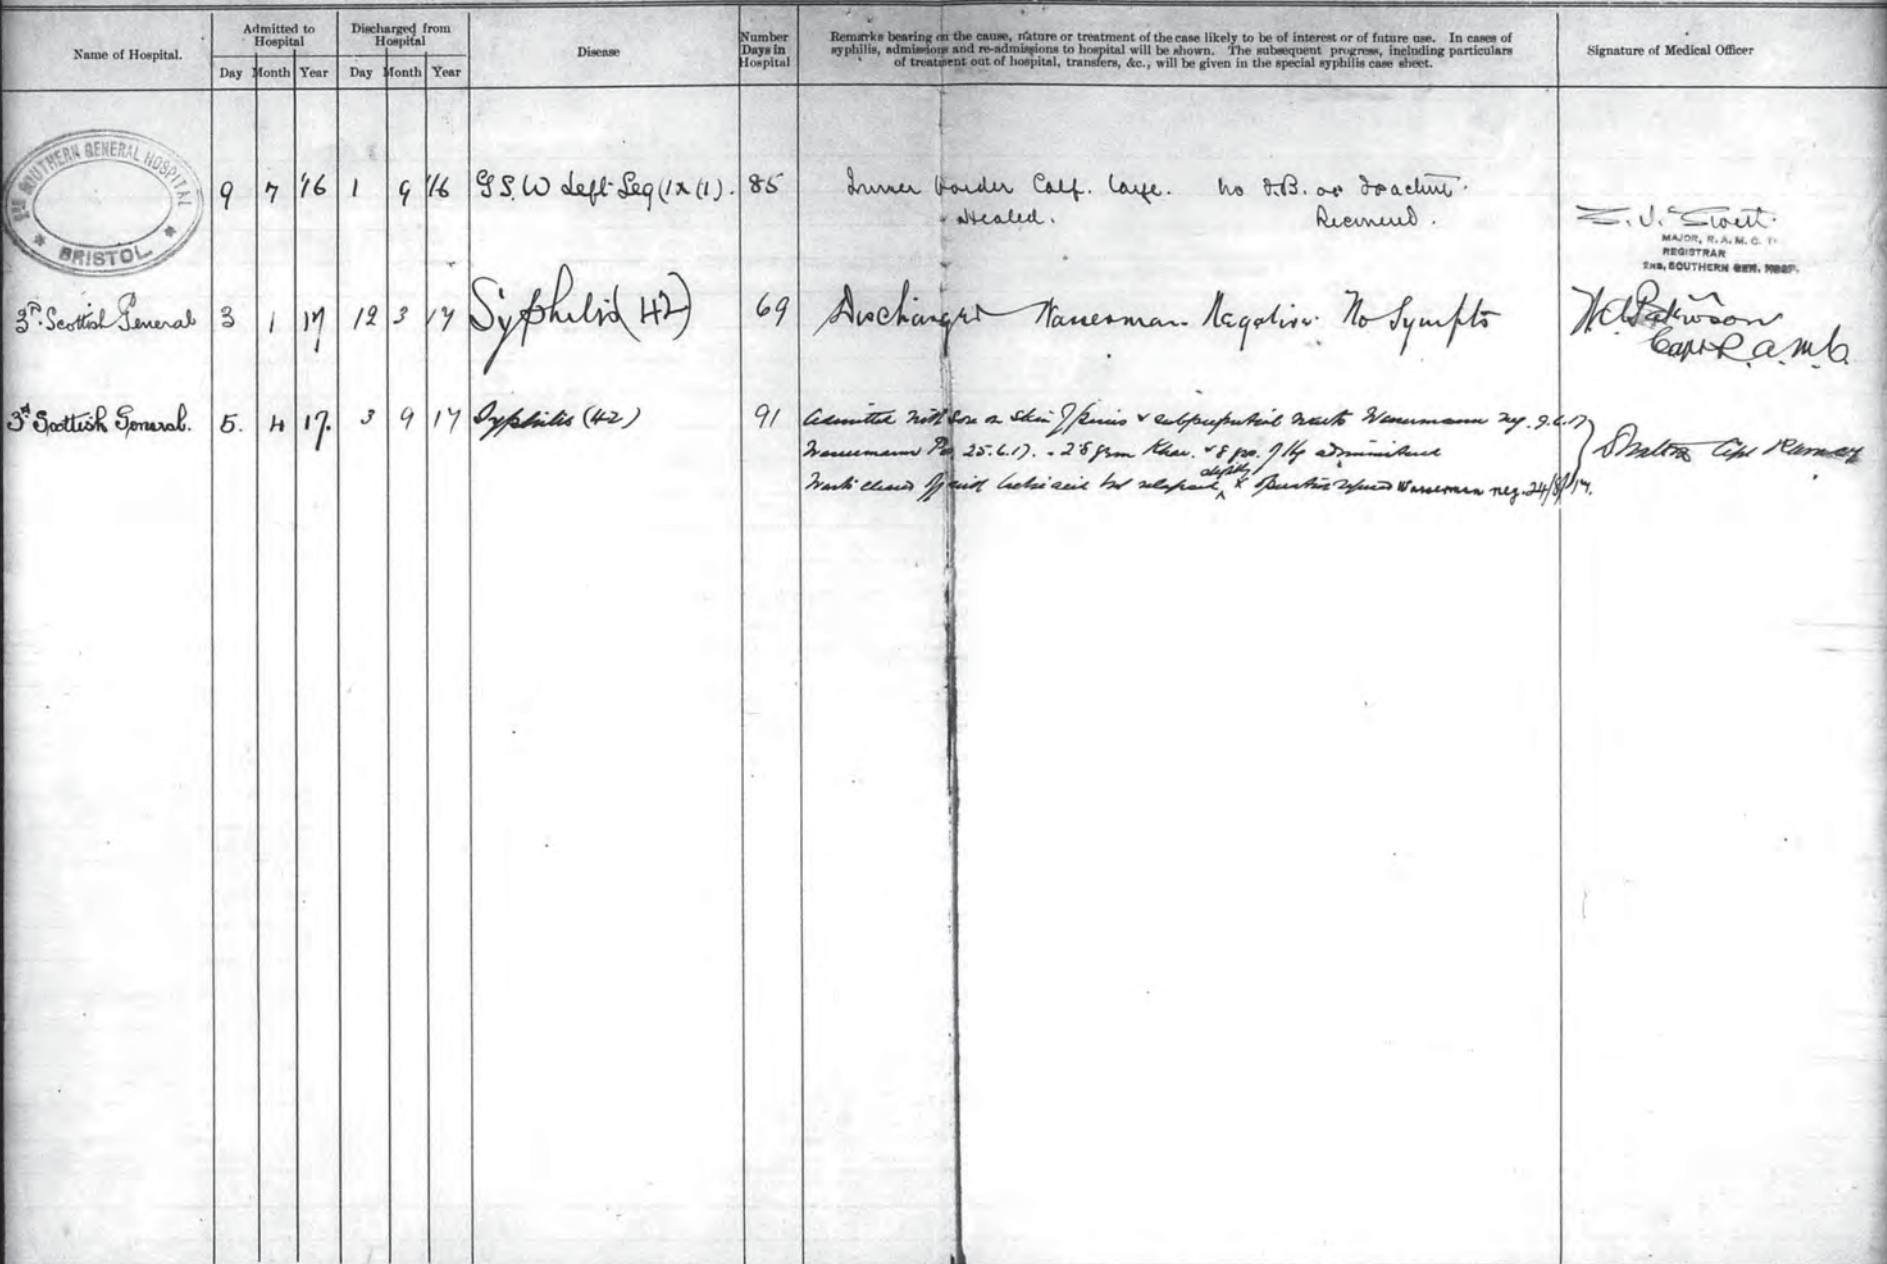 Name of Hospital.
Admitted to Hospital
Discharged from Hospital
Disease
Number Days in Hospital
Remarks bearing on the cause, nature or treatment of the case likely to be of interest or of future use. In cases of
syphilis, admissions and re-admissions to hospital will be shown. The subsequent progress, including particulars
of treatment out of hospital, transfers, &c., will be given in the special syphilis case sheet.
Signature of Medical Officer
Day Month Year Day Month Year
SOUTHERN GENERAL HOSPITAL
BRISTOL
9 7 '16 1 9 '16 G.S.W Left Leg (1x(1). 85 Inner border Calf. Large. No F.B. or fracture.
Healed. Recovered.
MAJOR, R.A.M.C. T.
REGISTRAR
2ND. SOUTHERN GEN. HOSP.
3rd Scottish General 3 1 17 12 3 17 Syphilis (42) 69 Discharged Wasserman Negative No Sympts
Capt R.A.M.C.
3rd Scottish General. 5. 4 17. 3 9 17 Syphilis (42) 91 Admitted with sore on skin of penis & subpreputial warts Wassermann neg. 9.6.17
Wassermann Pos 25.6.17. - 2.8 grm Khar. & 8 grs. of Hg administered
Warts slightly Wasserman neg. 24/8/17.
Capt